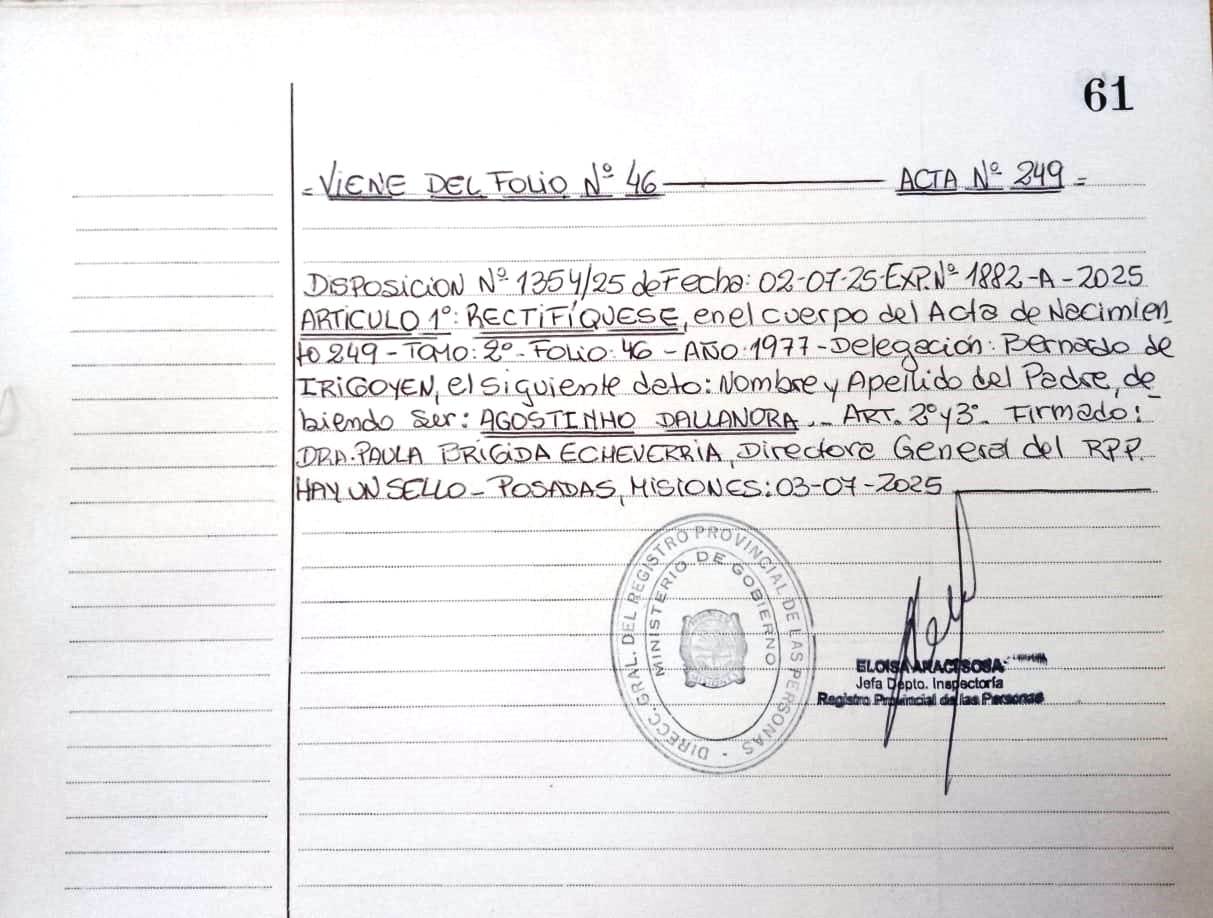 61
= VIENE DEL FOLIO Nº 46 ——— ACTA Nº 249 =
DISPOSICION Nº 1354/25 de Fecha: 02-07-25-EXP.Nº 1882-A-2025
ARTICULO 1º: RECTIFÍQUESE, en el cuerpo del Acta de Nacimien
to 249 - TOMO: 2º - FOLIO: 46 - AÑO: 1977 - Delegación: Bernardo de
IRIGOYEN, el siguiente dato: Nombre y Apellido del Padre, de
biendo ser: AGOSTINHO DALLANORA.- ART. 2º y 3º- Firmado:
DRA. PAULA BRIGIDA ECHEVERRIA, Directora General del RPP.
HAY UN SELLO - POSADAS, MISIONES: 03-07-2025
DIRECC. GRAL. DEL REGISTRO PROVINCIAL DE LAS PERSONAS -
MINISTERIO DE GOBIERNO
ELOISA ARACI SOSA
Jefa Depto. Inspectoría
Registro Provincial de las Personas